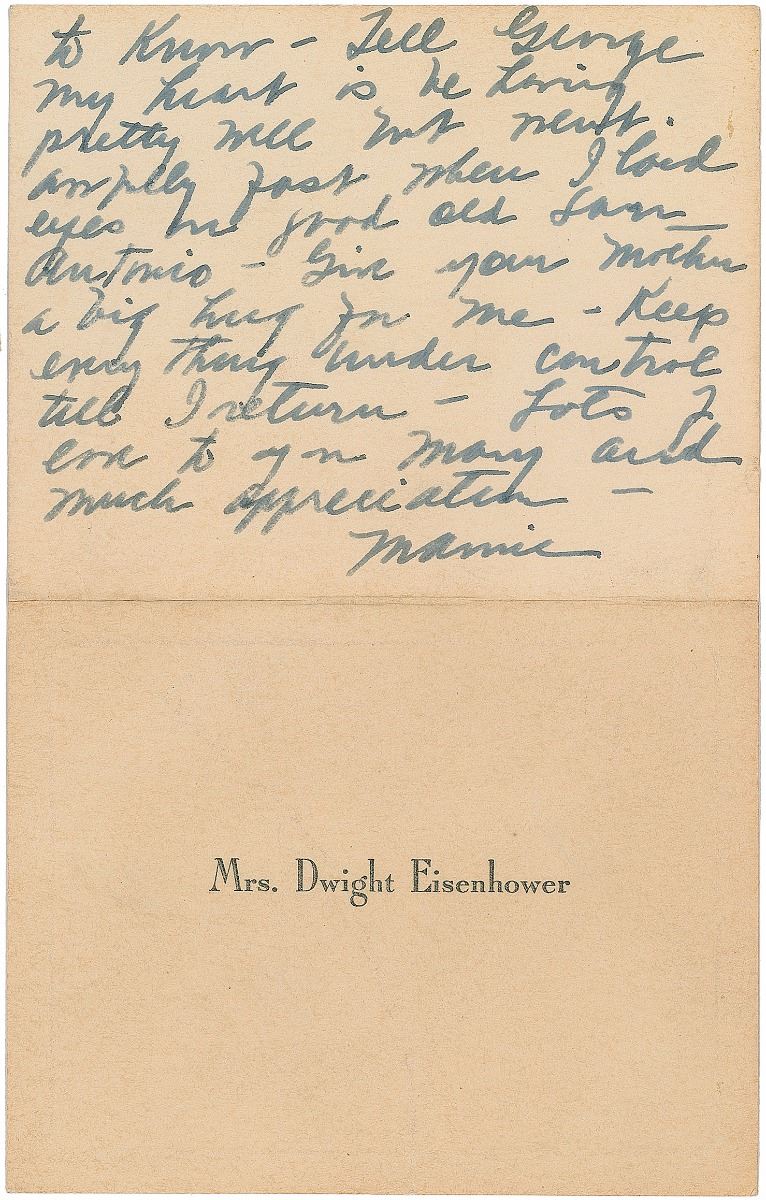 to Know - Tell George
my heart is behaving
pretty well but went
awfully fast when I laid
eyes on good old San
Antonio - Give your Mother
a big hug for me - Keep
every thing under control
till I return - Lots of
love to you Mary and
much appreciation -
Mamie
Mrs. Dwight Eisenhower